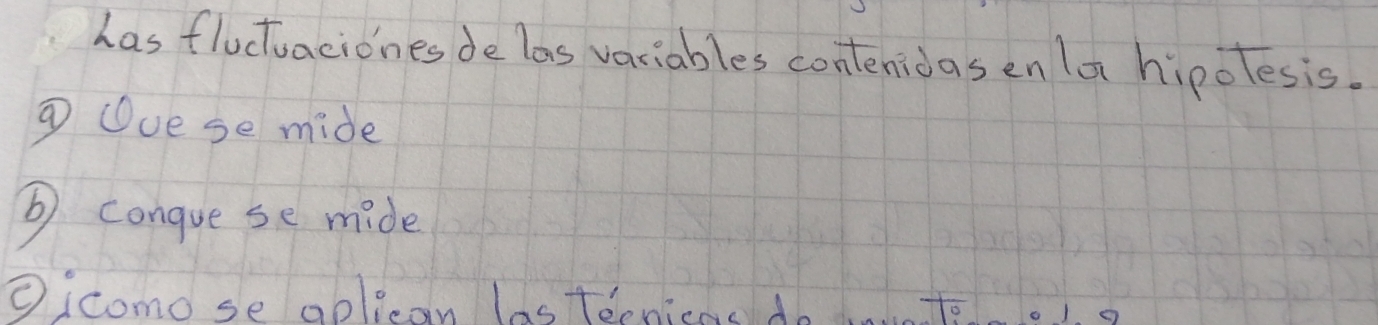 Las fluctuaciónes de las variables contenidas en la hipotesis.
a) Que se mide
b) conque se mide
c) ¿como se aplican las técnicas de